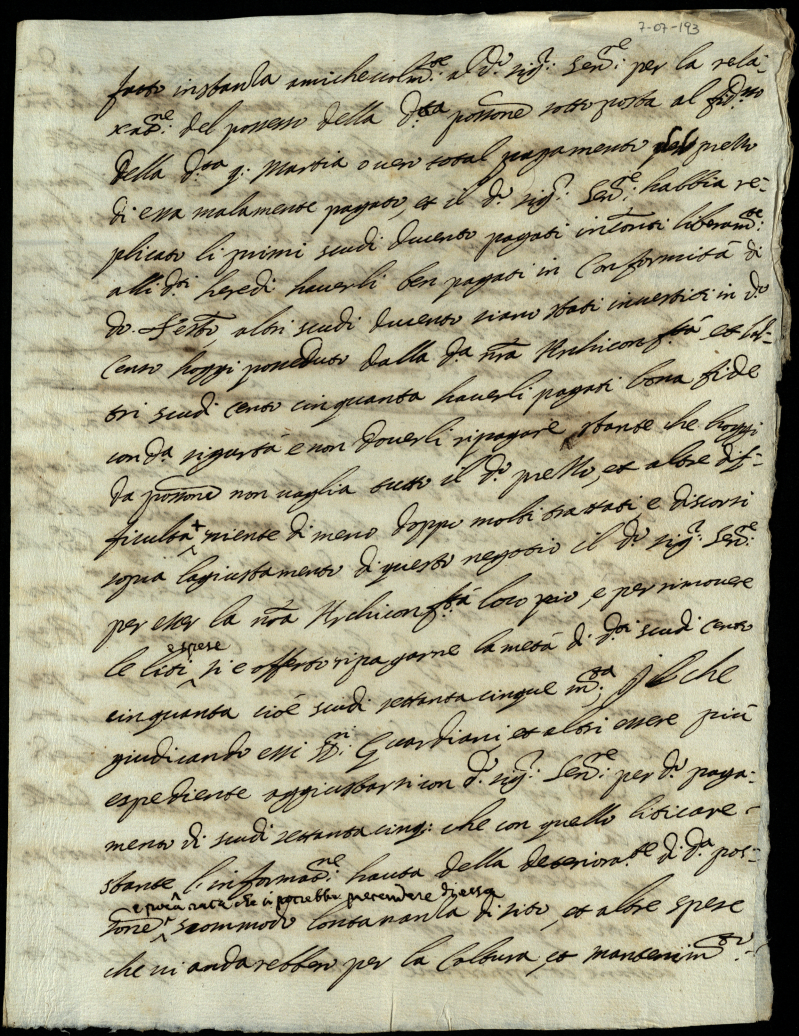 7-07-193
fatto instanza amichevolm.te al d.o sig.r Sen.e per la rela-
xat.ne del possesso della d.ta poss.one sotto posta al fid.sso
della d.ta q. Martia o vero total pagamento prezzo
di essa malamente pagato, et il d.o sig.r Sen.e habbia re-
plicato li primi scudi ducento pagati incontì liberam.te
alli d.ti heredi haverli ben pagati in conformità di
do. Testo, altri scudi ducento siano stati investiti in d.o
Censo hoggi posseduto dalla d.a n.ra Archiconf.tà et l'al-
tri scudi cento cinquanta haverli pagati bona fide
con d.a sigurtà e non doverli ripagare stante che hoggi
da poss.one non vaglia tutto il d.o prezzo, et altre dif-
ficultà + niente di meno doppo molti trattati e discorsi
sopra l'agiustamento di questo negotio il d.o sig.r Sen.e
per esser la n.ra Archiconf.tà loco pio, e per rimovere
le liti e spese si è offerto ripagarne la metà di d.ti scudi cento
cinquanta cioè scudi settanta cinque m.ta Il che
giudicando essi SS.ri Guardiani, et altri essere più
espediente aggiustarsi con d.o sig.r Sen.e per d.o paga-
mento di scudi settantacinq: che con quello liticare
stante l'informat.ne hauta della deteriorat.ne di d.a pos-
e poca rata che si potrebbe pretendere di essa
sione scommodo lontananza di sito, et altre spese
che vi andarebbero per la Coltura, et mantenim.to